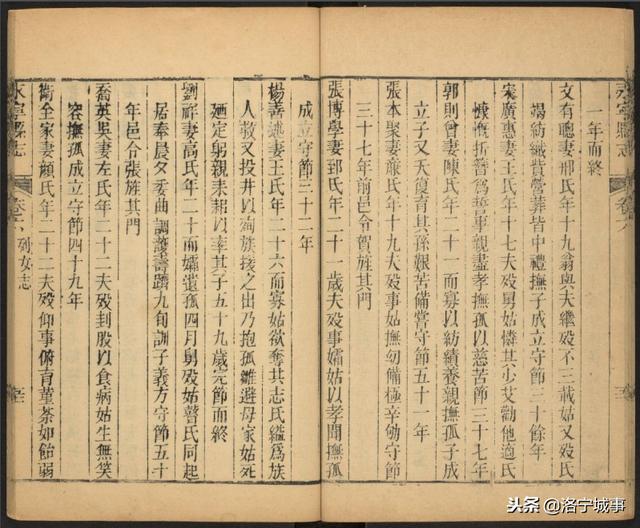 永寧縣志
卷六
一年而終
文有聰妻邢氏年十九翁與夫繼歿不三載姑又歿氏
竭紡織貲營葬皆中禮撫子成立守節三十餘年
宋廣惠妻王氏年十七夫歿舅姑憐其少艾勸他適氏
慷慨折簪為誓事親盡孝撫孤以慈苦節三十七年
郭則曾妻陳氏年二十一而寡以紡績養親撫孤子成
立子又夭復育其孫艱苦備嘗守節五十一年
張本聚妻蘇氏年十九夫歿事姑撫幼備極辛劬守節
三十七年前邑令賀旌其門
張博學妻郅氏年二十一歲夫歿事孀姑以孝聞撫孤
成立守節三十二年
楊善述妻王氏年二十六而寡姑欲奪其志氏縊為族
人救又投井以殉族接之出乃抱孤雛避母家姑死
廼定躬親耒耜以率其子五十九歲完節而終
劉祥妻高氏年二十而孀遺孤四月舅歿姑瞽氏同起
居奉晨夕委曲調護壽躋九旬訓子義方守節五十
年邑令張旌其門
喬英吳妻左氏年二十二夫歿刲股以食病姑生無笑
容撫孤成立守節四十九年
衛全家妻顏氏年二十二夫歿仰事俯育荼如飴弱
永寧縣志
卷六
列女志
頭条@洛宁城事